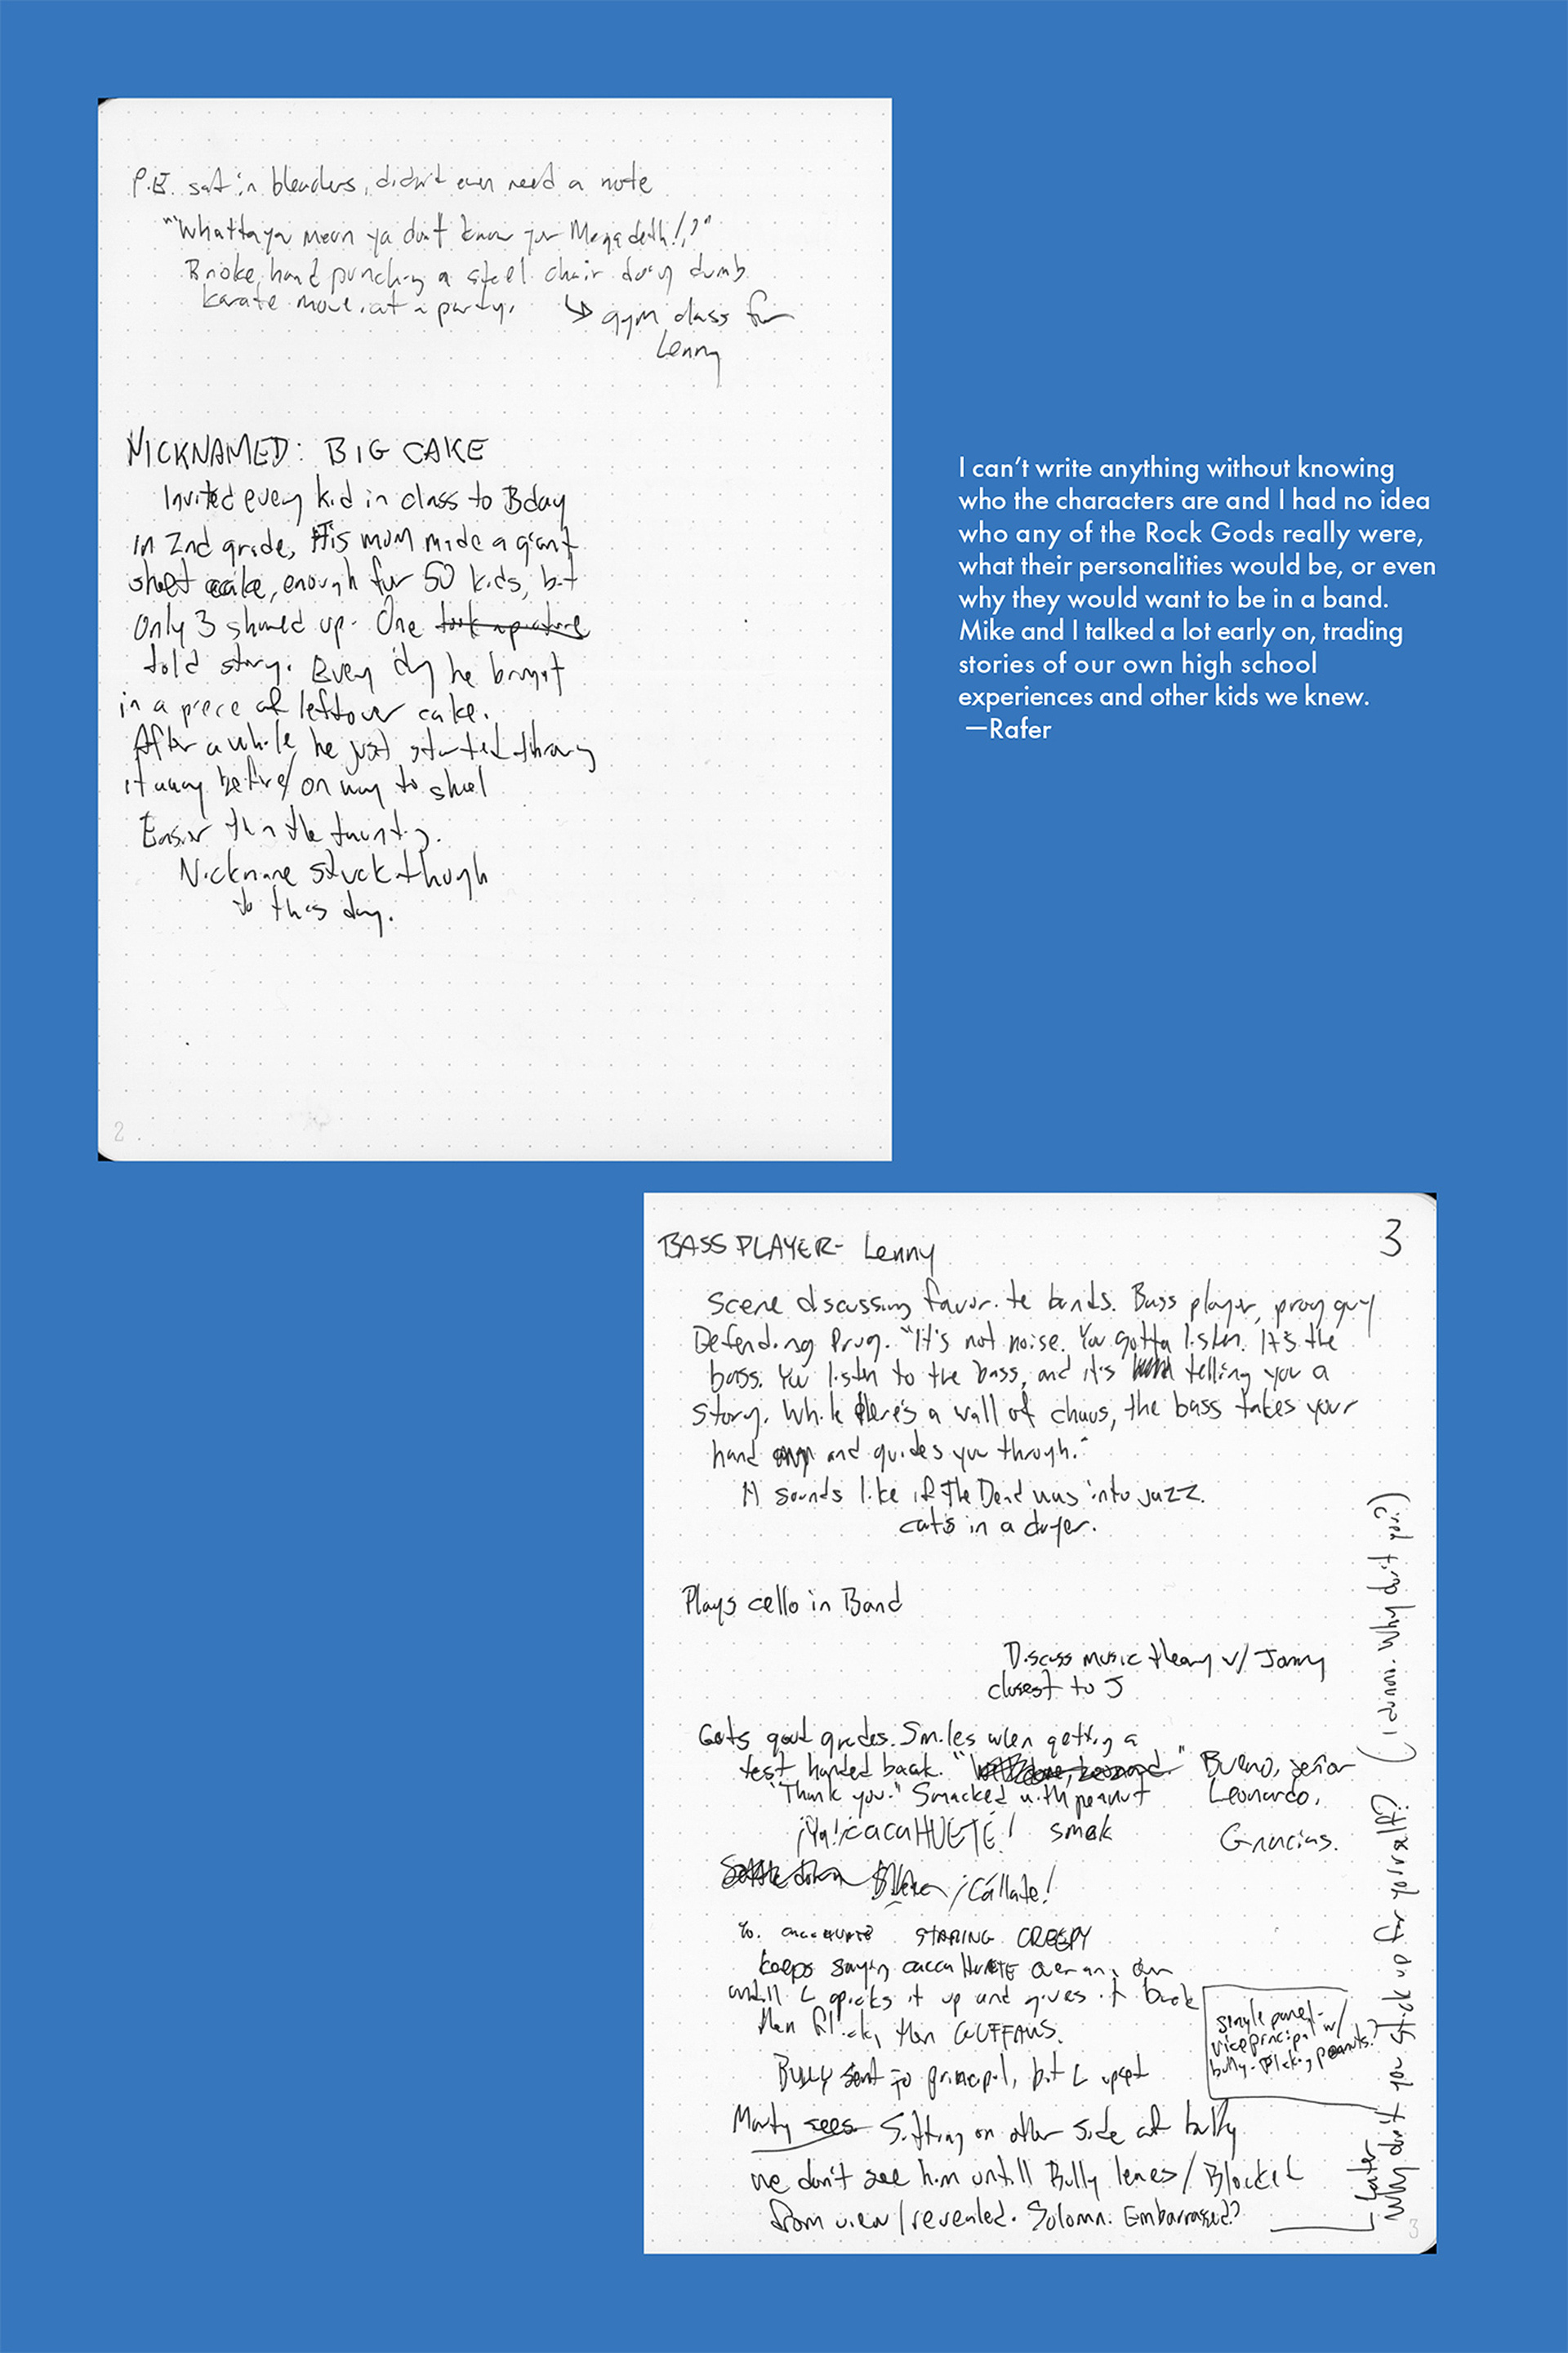 P.E. sat in bleachers, didn't even need a note
"Whattaya mean ya don't know yur Megadeth!?"
Broke hand punching a steel chair doing dumb
karate move at a party. ↳ gym class for
Lenny
NICKNAMED: BIG CAKE
Invited every kid in class to Bday
in 2nd grade, His mom made a giant
sheet cake, enough for 50 kids, but
only 3 showed up. One took a picture
told story. Every day he brought
in a piece of leftover cake.
After a while he just started throwing
it away before/on way to school
Easier than the taunting.
Nickname stuck though
to this day.
2
I can't write anything without knowing
who the characters are and I had no idea
who any of the Rock Gods really were,
what their personalities would be, or even
why they would want to be in a band.
Mike and I talked a lot early on, trading
stories of our own high school
experiences and other kids we knew.
—Rafer
BASS PLAYER- Lenny
3
Scene discussing favorite bands. Bass player, prog guy
Defending Prog. "It's not noise. You gotta listen. It's the
bass. You listen to the bass, and it's telling you a
story. While there's a wall of chaos, the bass takes your
hand and guides you through."
sounds like if The Dead was into jazz.
cats in a dryer.
Plays cello in Band
Discuss music theory w/ Jonny
closest to J
Gets good grades. Smiles when getting a
test handed back. "Well done, Leonard." Bueno, señor
"Thank you." Smacked with peanut Leonardo.
¡Ya! ¡cacaHUETE! smak Gracias.
Settle down ¡Cállate!
STARING CREEPY
keeps saying caccaHUETE over and over
untill L picks it up and gives it back
then flick, then GUFFAWS.
single panel-
viceprincipal w/
bully-flicking peanuts?
Bully sent to principal, but L upset
Marty sees Sitting on other side of bully
we don't see him untill Bully leaves/Blocked
from view/revealed. Solomn. Embarrassed?
Later
Why don't you stick up for yourself? (I dunno. Why don't you?)
3